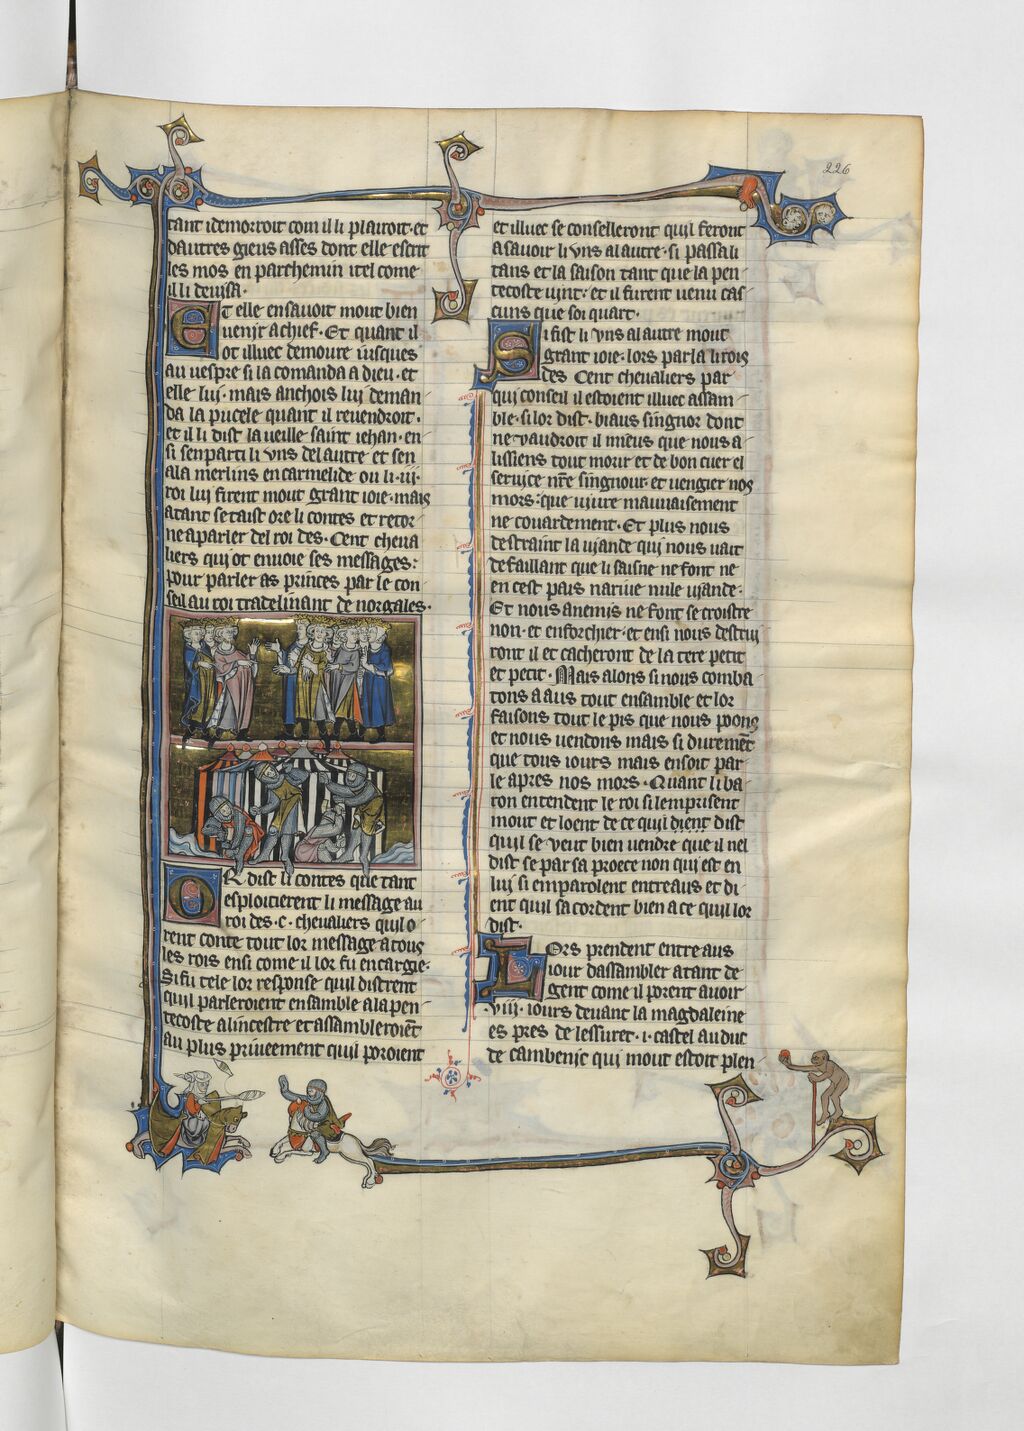 226
tant idemorroit com il li plairoit · et
dautres gieus asses dont elle escrit
les mos en parchemin itel come
il li devisa ·
Et elle ensavoit mout bien
venir achief · Et quant il
ot illuec demoure iusques
au vespre si la comanda a dieu · et
elle lui · mais anchois lui deman
da la pucele quant il revendroit ·
et il li dist la veille saint iehan · en
si senparti li vns del autre et sen
ala merlins en carmelide ou li · iii ·
roi lui firent mout grant ioie · mais
atant se taist ore li contes et retor
ne a parler del roi des · Cent cheua
liers qui ot envoie ses messages :
pour parler as princes par le con
seil au roi tradelinant de norgales ·
Or dist li contes que tant
esploitierent li message au
roi des · c · cheualiers quil o
rent conte tout lor message a tous
les rois ensi come il lor fu encargie ·
Si fu tele lor response quil distrent
quil parleroient ensamble ala pen
tecoste alincestre et assambleroiēt
au plus priueement quil poroient
et illuec se conselleront quil feront
asavoir li vns al autre · si passa li
tans et la saison tant que la pen
tecoste vint : et il furent venu cas
cuns que soi quart ·
Si fist li vns al autre mout
grant ioie · lors parla li rois
des Cent cheualiers par
qui conseil il estoient illuec assam
ble · si lor dist · biaus singnor dont
ne vaudroit il mieus que nous a
lissiens tout morir et de bon cuer el
seruice nr̄e singnour et vengier nos
mors : que viure mauuaisement
ne couardement · Et plus nous
destraint la viande qui nous vait
defaillant que li saisne ne font ne
en cest pais nariue nule viande ·
Et nous anemis ne font se croistre
non · et enforchier · et ensi nous destrui
ront il et cacheront de la tere petit
et petit · Mais alons si nous comba
tons a aus tout ensamble et lor
faisons tout le pis que nous poons
et nous vendons mais si duremēt
que tous iours mais ensoit par
le apres nos mors · Quant li ba
ron entendent le roi si lemprisent
mout et loent de ce quil dient dist
quil se veut bien vendre que il nel
dist se par sa proece non qui est en
lui si emparolent entreaus et di
ent quil sacordent bien a ce quil lor
dist ·
Lors prendent entre aus
iour dassambler atant de
gent come il porent auoir
· viij · iours deuant la magdaleine
es pres de lessuret · i · castel au duc
de cambenic qui mout estoit plen